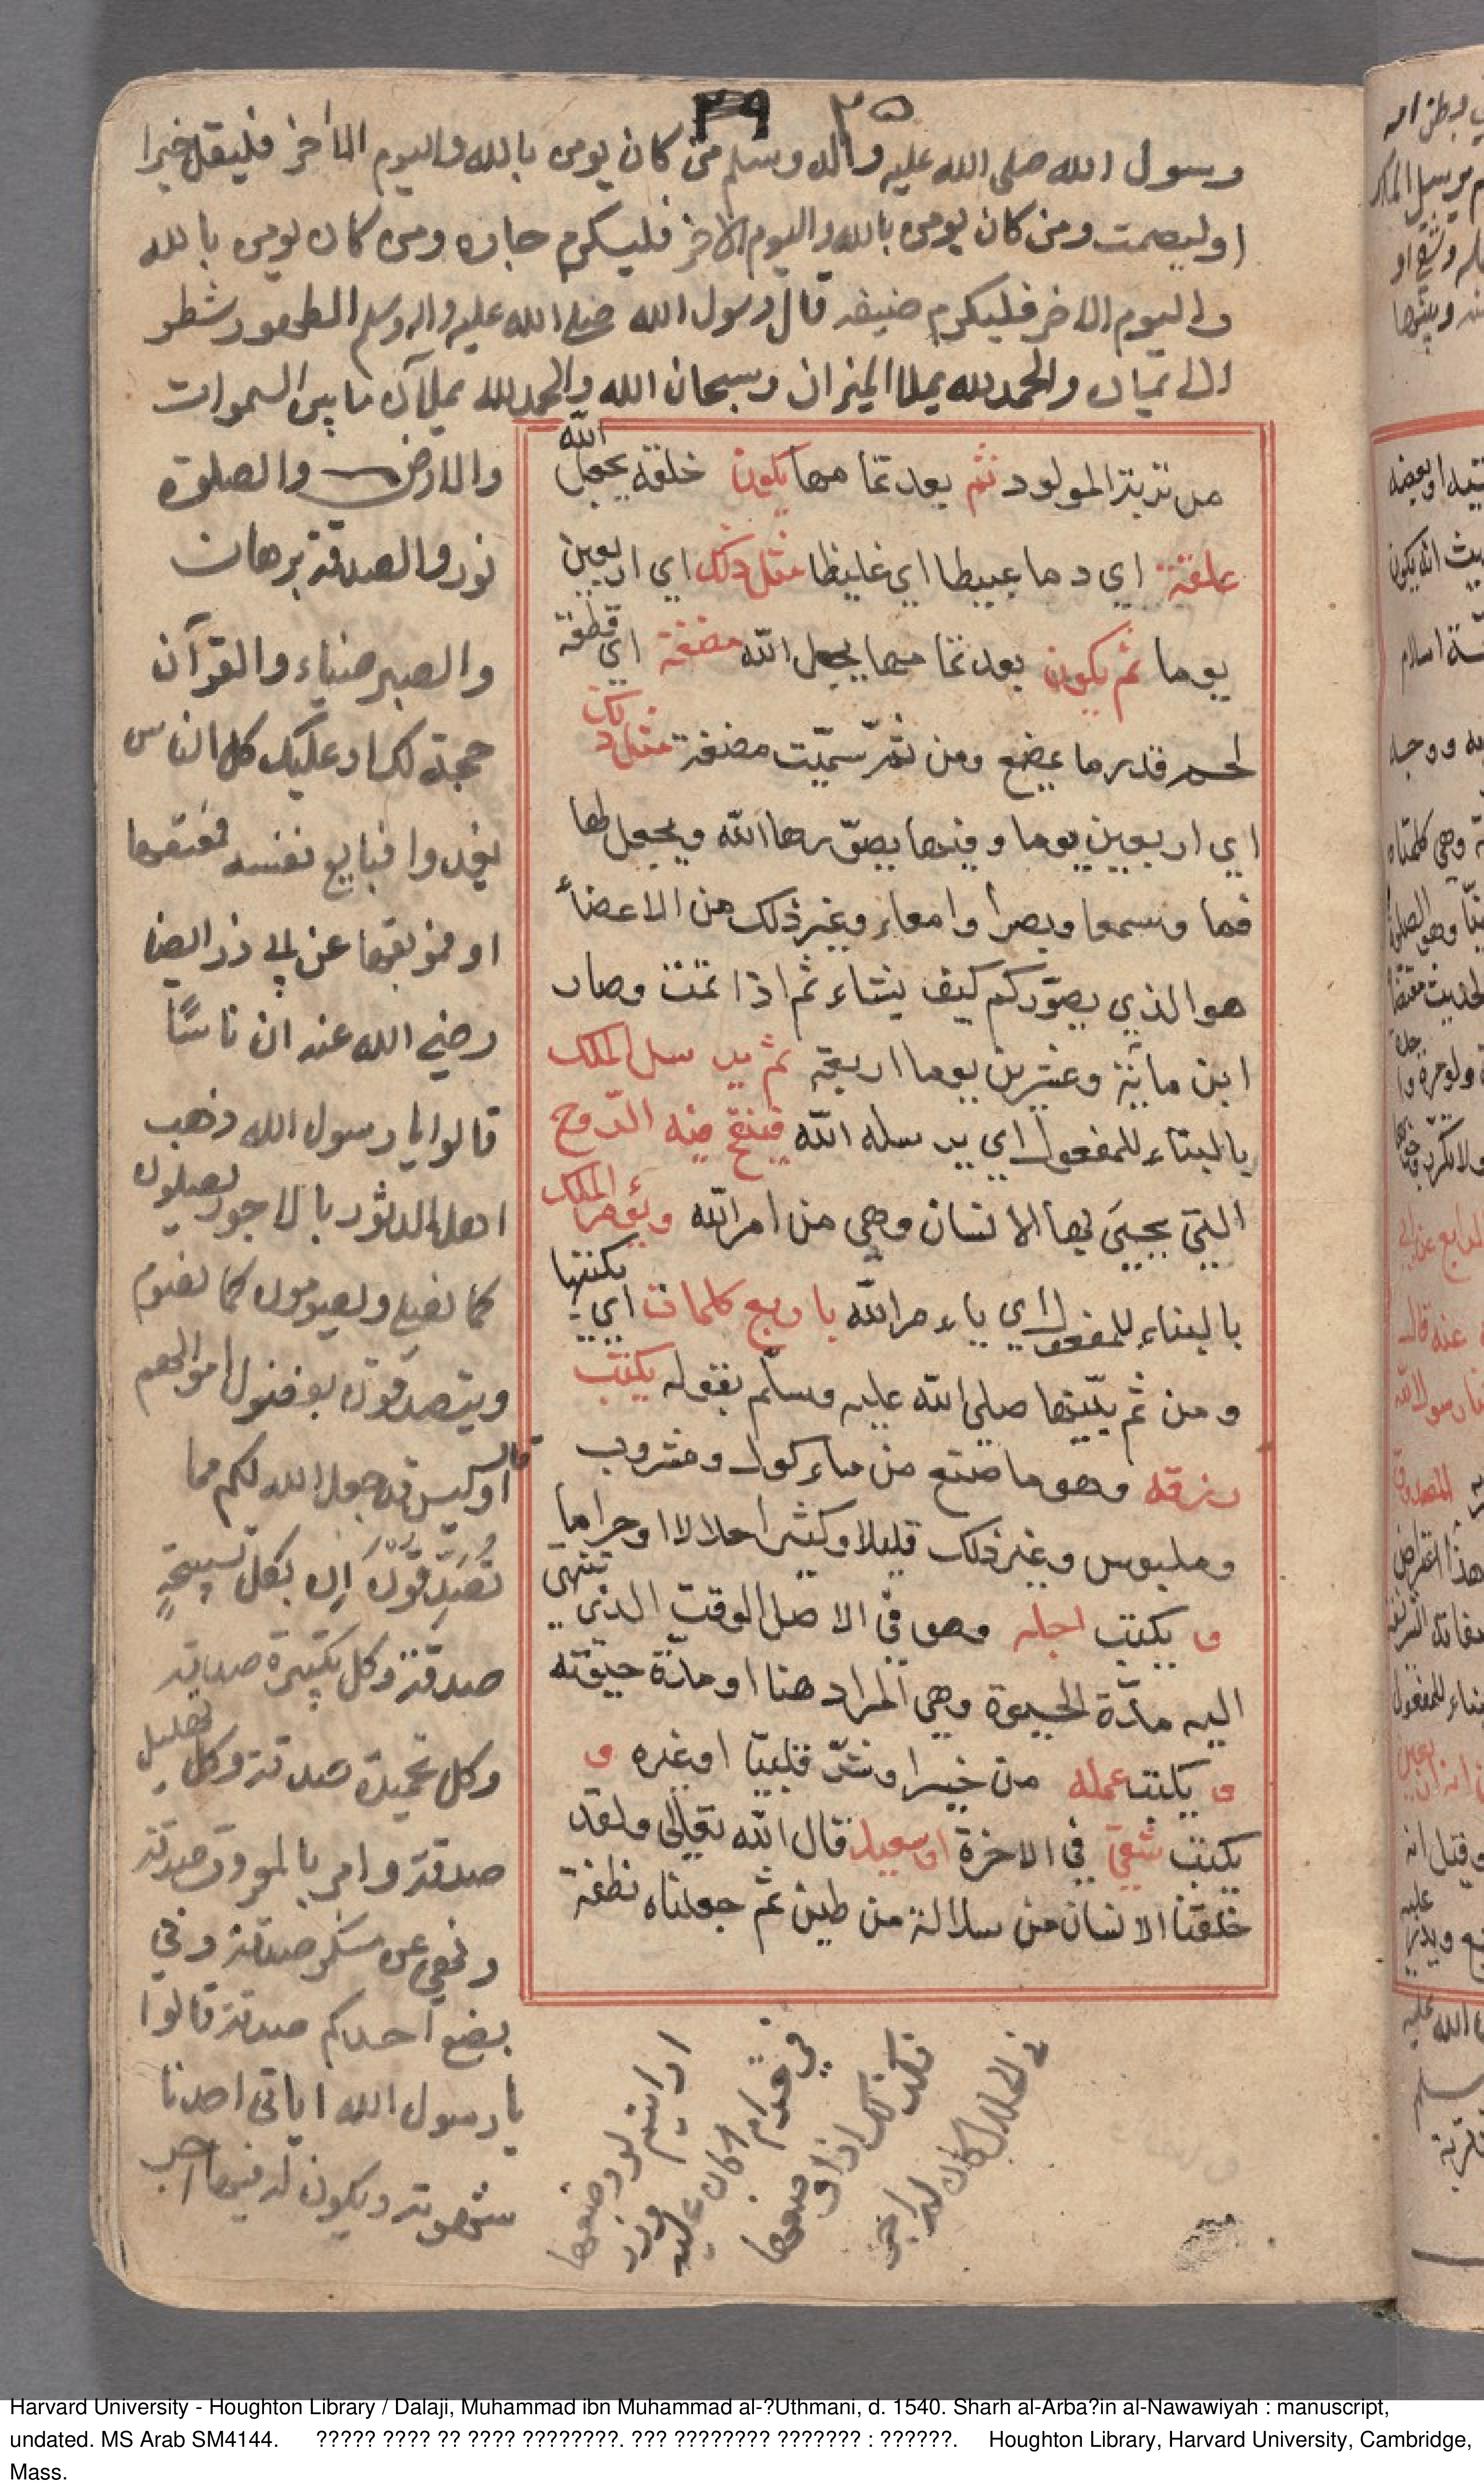 ٢٩ ٢٥
رسول الله صلى الله عليه واله وسلم من كان يومن بالله واليوم الاخر فليقل خيرا
او ليصمت ومن كان يومن بالله واليوم الاخر فليكرم جاره ومن كان يومن بالله
واليوم الاخر فليكرم ضيفه قال رسول الله صلى الله عليه واله وسلم الطهور شطر
الايمان والحمد لله يملا الميزان وسبحان الله والحمد لله يملآن ما بين السموات
والارض والصلوة
نور والصدقة برهان
والصبر ضياء والقرآن
حجة لك او عليك كل الناس
يغدوا فبايع نفسه فمعتقها
او موبقها عن ابي ذر ايضا
رضي الله عنه ان ناسًا
قالوا يا رسول الله ذهب
اهل الدثور بالاجور يصلون
كما نصلي ويصومون كما نصوم
ويتصدقون بفضول اموالهم
قال اوليس قد جعل الله لكم مما
تصدقون ان بكل تسبيحة
صدقة وكل تكبيرة صدقة
وكل تحميدة صدقة وكل تهليل
صدقة وامر بالمعروف صدقة
ونهي عن منكر صدقة وفي
بضع احدكم صدقة قالوا
يا رسول الله اياتي احدنا
شهوته ويكون له فيها اجر
ارايتم لو وضعها
في حرام اكان عليه وزر
فكذلك اذا وضعها
في الحلال كان له اجر
من تربة المولود ثم بعد تمامها يكون خلقه يجعل الله
علقة اي دما عبيطا اي غليظا مثل ذلك اي اربعين
يوما ثم يكون بعد تمامها يجعل الله مضغة اي قطعة
لحم قدر ما يمضغ ومن ثمّ سمّيت مضغة مثل ذلك
اي اربعين يوما وفيها يصوّرها الله ويجعل لها
فما وسمعا وبصرا وامعاء وغير ذلك من الاعضاء
هو الذي يصوّركم كيف يشاء ثم اذا تمت وصار
ابن مائة وعشرين يوما اربعة ثم يرسل الملك
بالبناء للمفعول اي يرسله الله فينفخ فيه الرّوح
التي يحيى بها الانسان وهي من امر الله ويؤمر الملك
بالبناء للمفعول اي ياءمر الله باربع كلمات اي يكتبها
ومن ثم بيّنها صلى الله عليه وسلّم بقوله يكتب
رزقه وهو ما ينتفع من ماءكول ومشروب
وملبوس وغير ذلك قليلا وكثيرا حلالا او حراما
و يكتب اجله وهو في الاصل الوقت الذي تنتهي
اليه مدّة الحيوة وهي المراد هنا او مدّة حيوته
و يكتب عمله من خير او شرّ قلبيّا او غيره و
يكتب شقي في الاخرة او سعيد قال الله تعالى ولقد
خلقنا الانسان من سلالة من طين ثم جعلناه نطفة
Harvard University - Houghton Library / Dalaji, Muhammad ibn Muhammad al-?Uthmani, d. 1540. Sharh al-Arba?in al-Nawawiyah : manuscript,
undated. MS Arab SM4144. ????? ???? ?? ???? ????????. ??? ???????? ??????? : ??????. Houghton Library, Harvard University, Cambridge,
Mass.